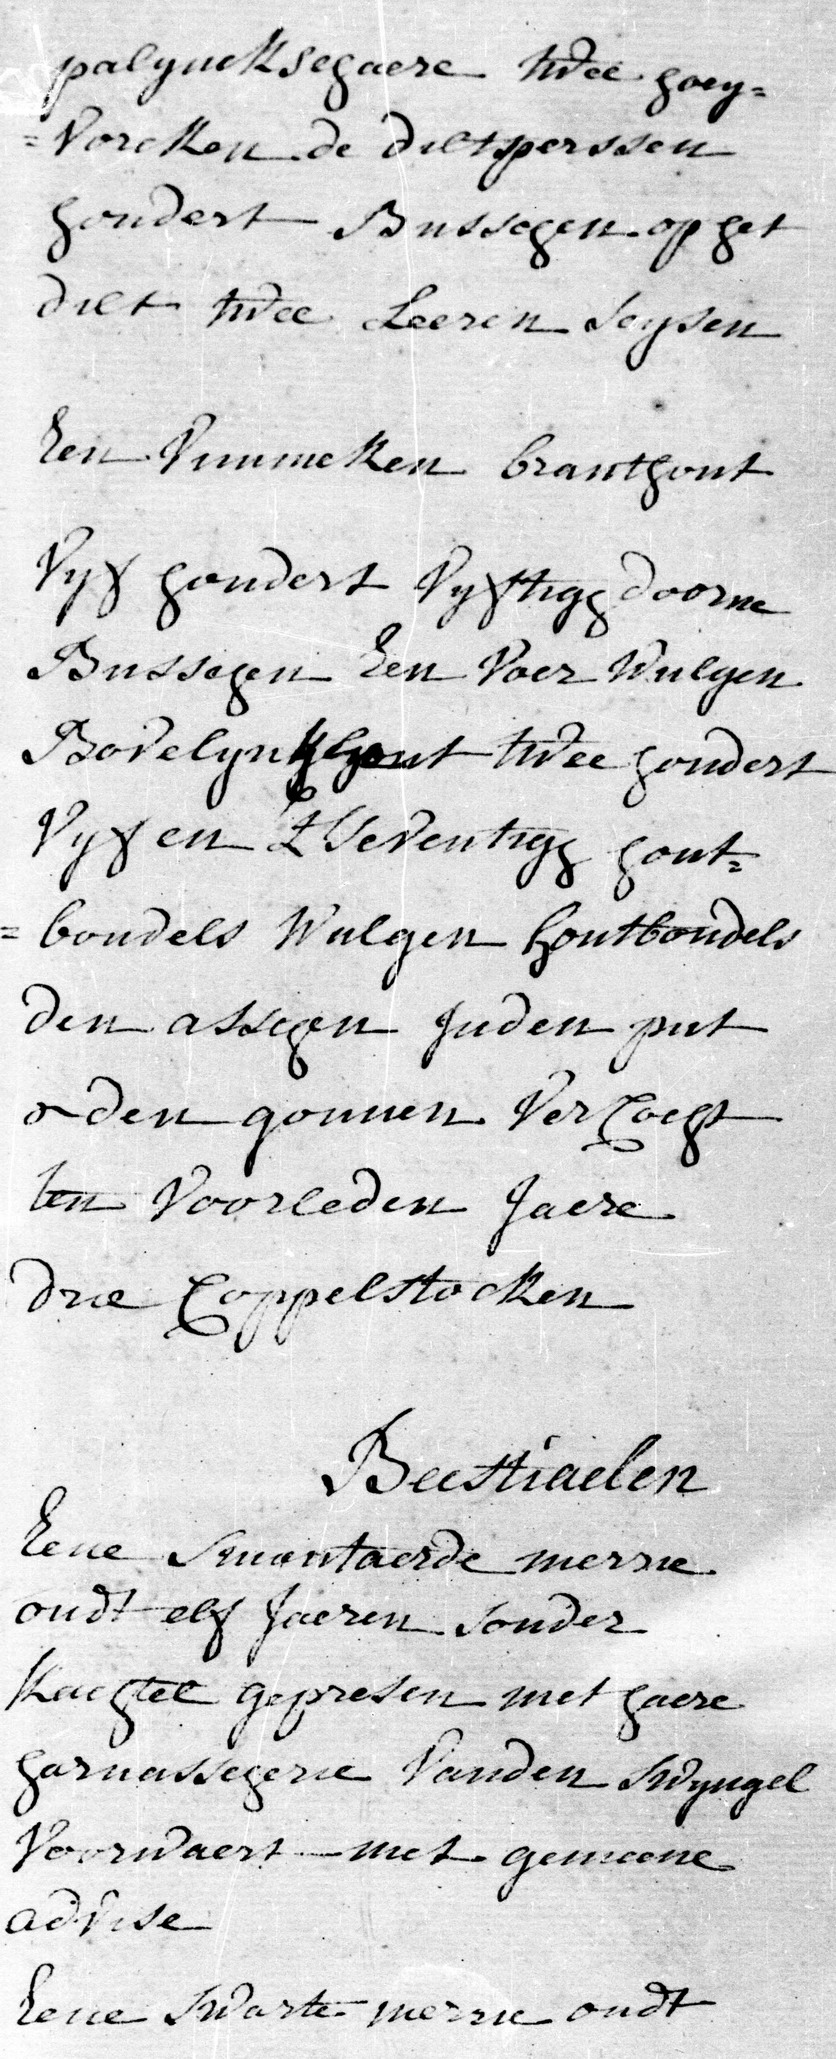 palynckscheere twee hoeij=
=vorcken de diltperssen
hondert Busschen op het
dilt twee Leeren Seysen
Een Vummeken branthout
Vyf hondert Vyftigh doorne
Busschen Een Voer Wulgen
Bovelynckhout twee hondert
Vyf en tseventigh hout=
=bondels Wulgen houtbondels
den asschen in den put
den gonnen Vercocht
ten Voorleden Jaere
drie Coppelstocken
Beestiaelen
Eene merrie
oudt elf Jaeren sonder
Kachtel gepresen met haere
harnasscherie Vanden Swyngel
Voorwaert met gemeene
advise
Eene Swarte merrie oudt